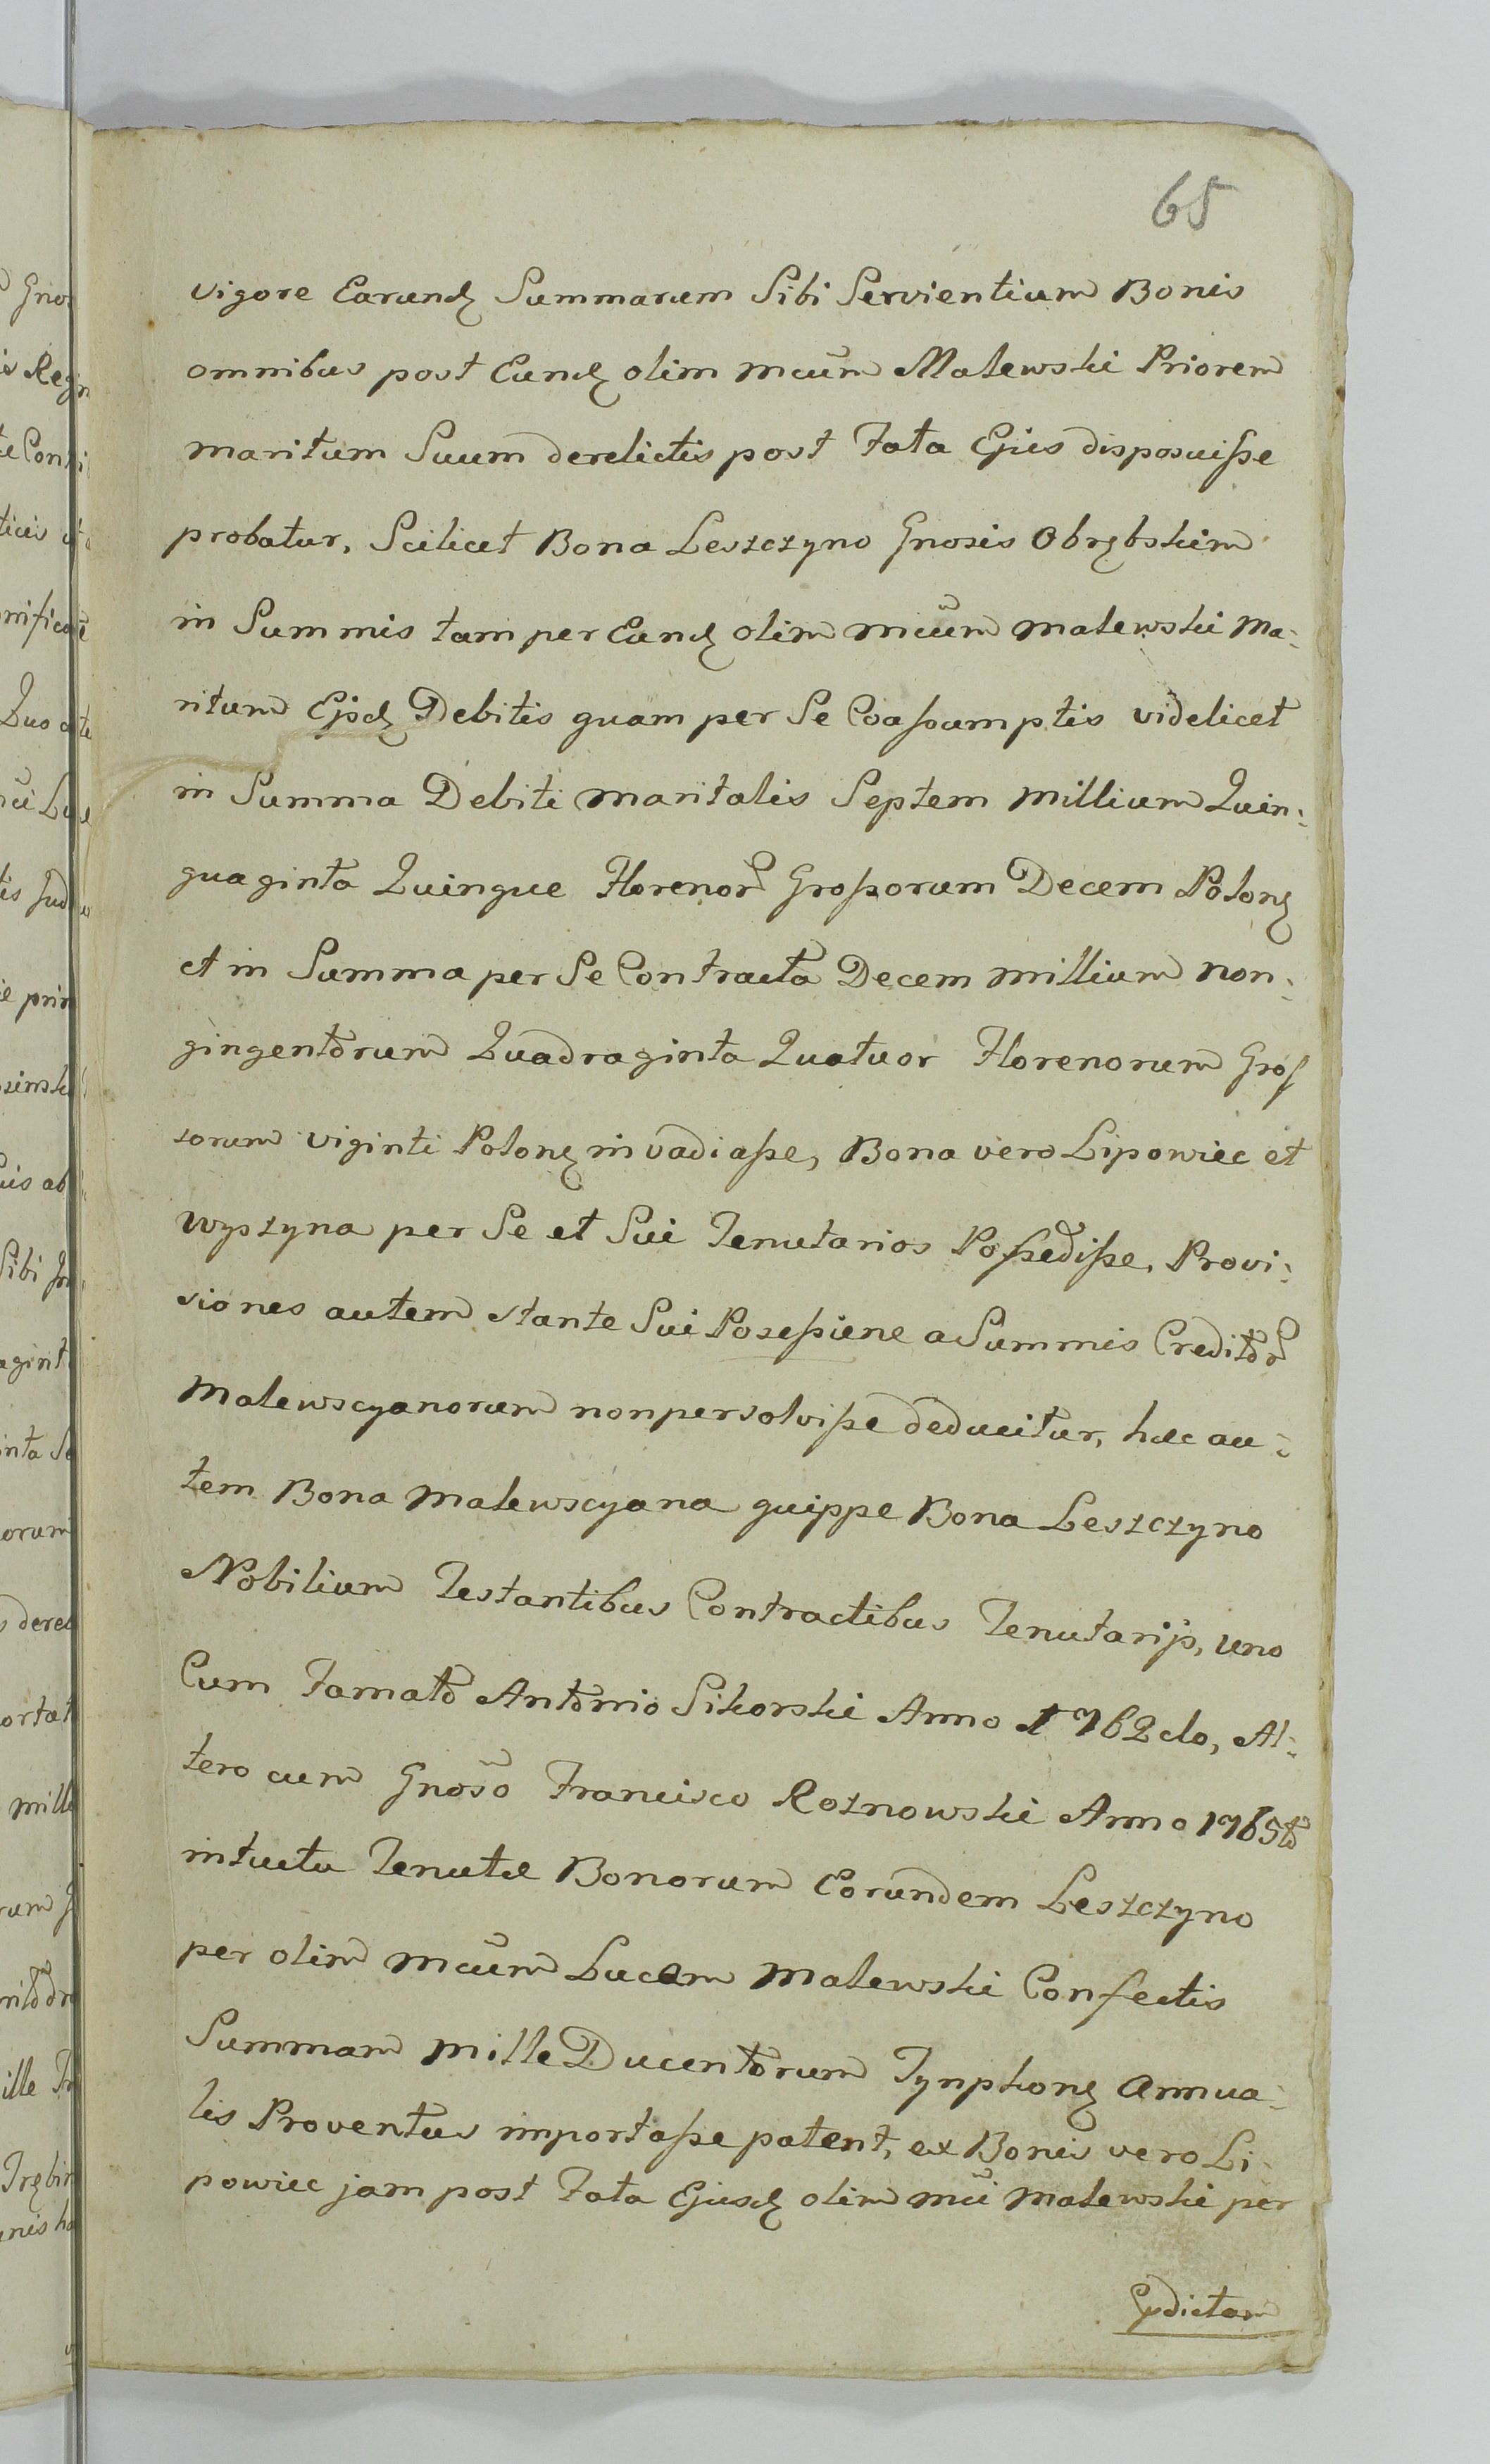 65
vigore Earundę Summarum Sibi Servientium Bonis
omnibus post Eundę olim Mcum Malewski Priorem
maritum Suum derelictis post Fata Ejus disposuisse
probatur, Scilicet Bona Leszczyno Gnosis Obrębskim
in Summis tam per Eundę olim Mcum Malewski Ma:
ritum Ejsdę Debitis quam per Se Coassumptis videlicet
in Summa Debiti maritalis Septem Millium Quin:
quaginta Quinque Florenor Grossorum Decem Polonę
et in Summa per Se Contracta Decem Millium Non:
gingentorum Quadraginta Quatuor Florenorum Gros
sorum viginti Polonę invadiasse, Bona vero Lipowiec et
Wyszyna per Se et Sui Tenutarios Possedisse, Provi:
siones autem stante Sui Posessiene a Summis Creditor
Malewscyanorum non persolvisse deducitur, hæc au:
tem Bona Malewscyana quippe Bona Leszczyno
Nobilium Testantibus Contractibus Tenutarijs, uno
Cum Famato Antonio Sikorski Anno 1762do, Al:
tero cum Gnoso Francisco Roznowski Anno 1765to
intuitu Tenutæ Bonorum Eorundem Leszczyno
per olim Mcum Lucam Malewski Confectis
Summam Mille Ducentorum Tynphonę Annua:
lis Proventus importasse patent, ex Bonis vero Li:
powiec jam post Fata Ejusdę olim Mci Malewski per
Ejdictam